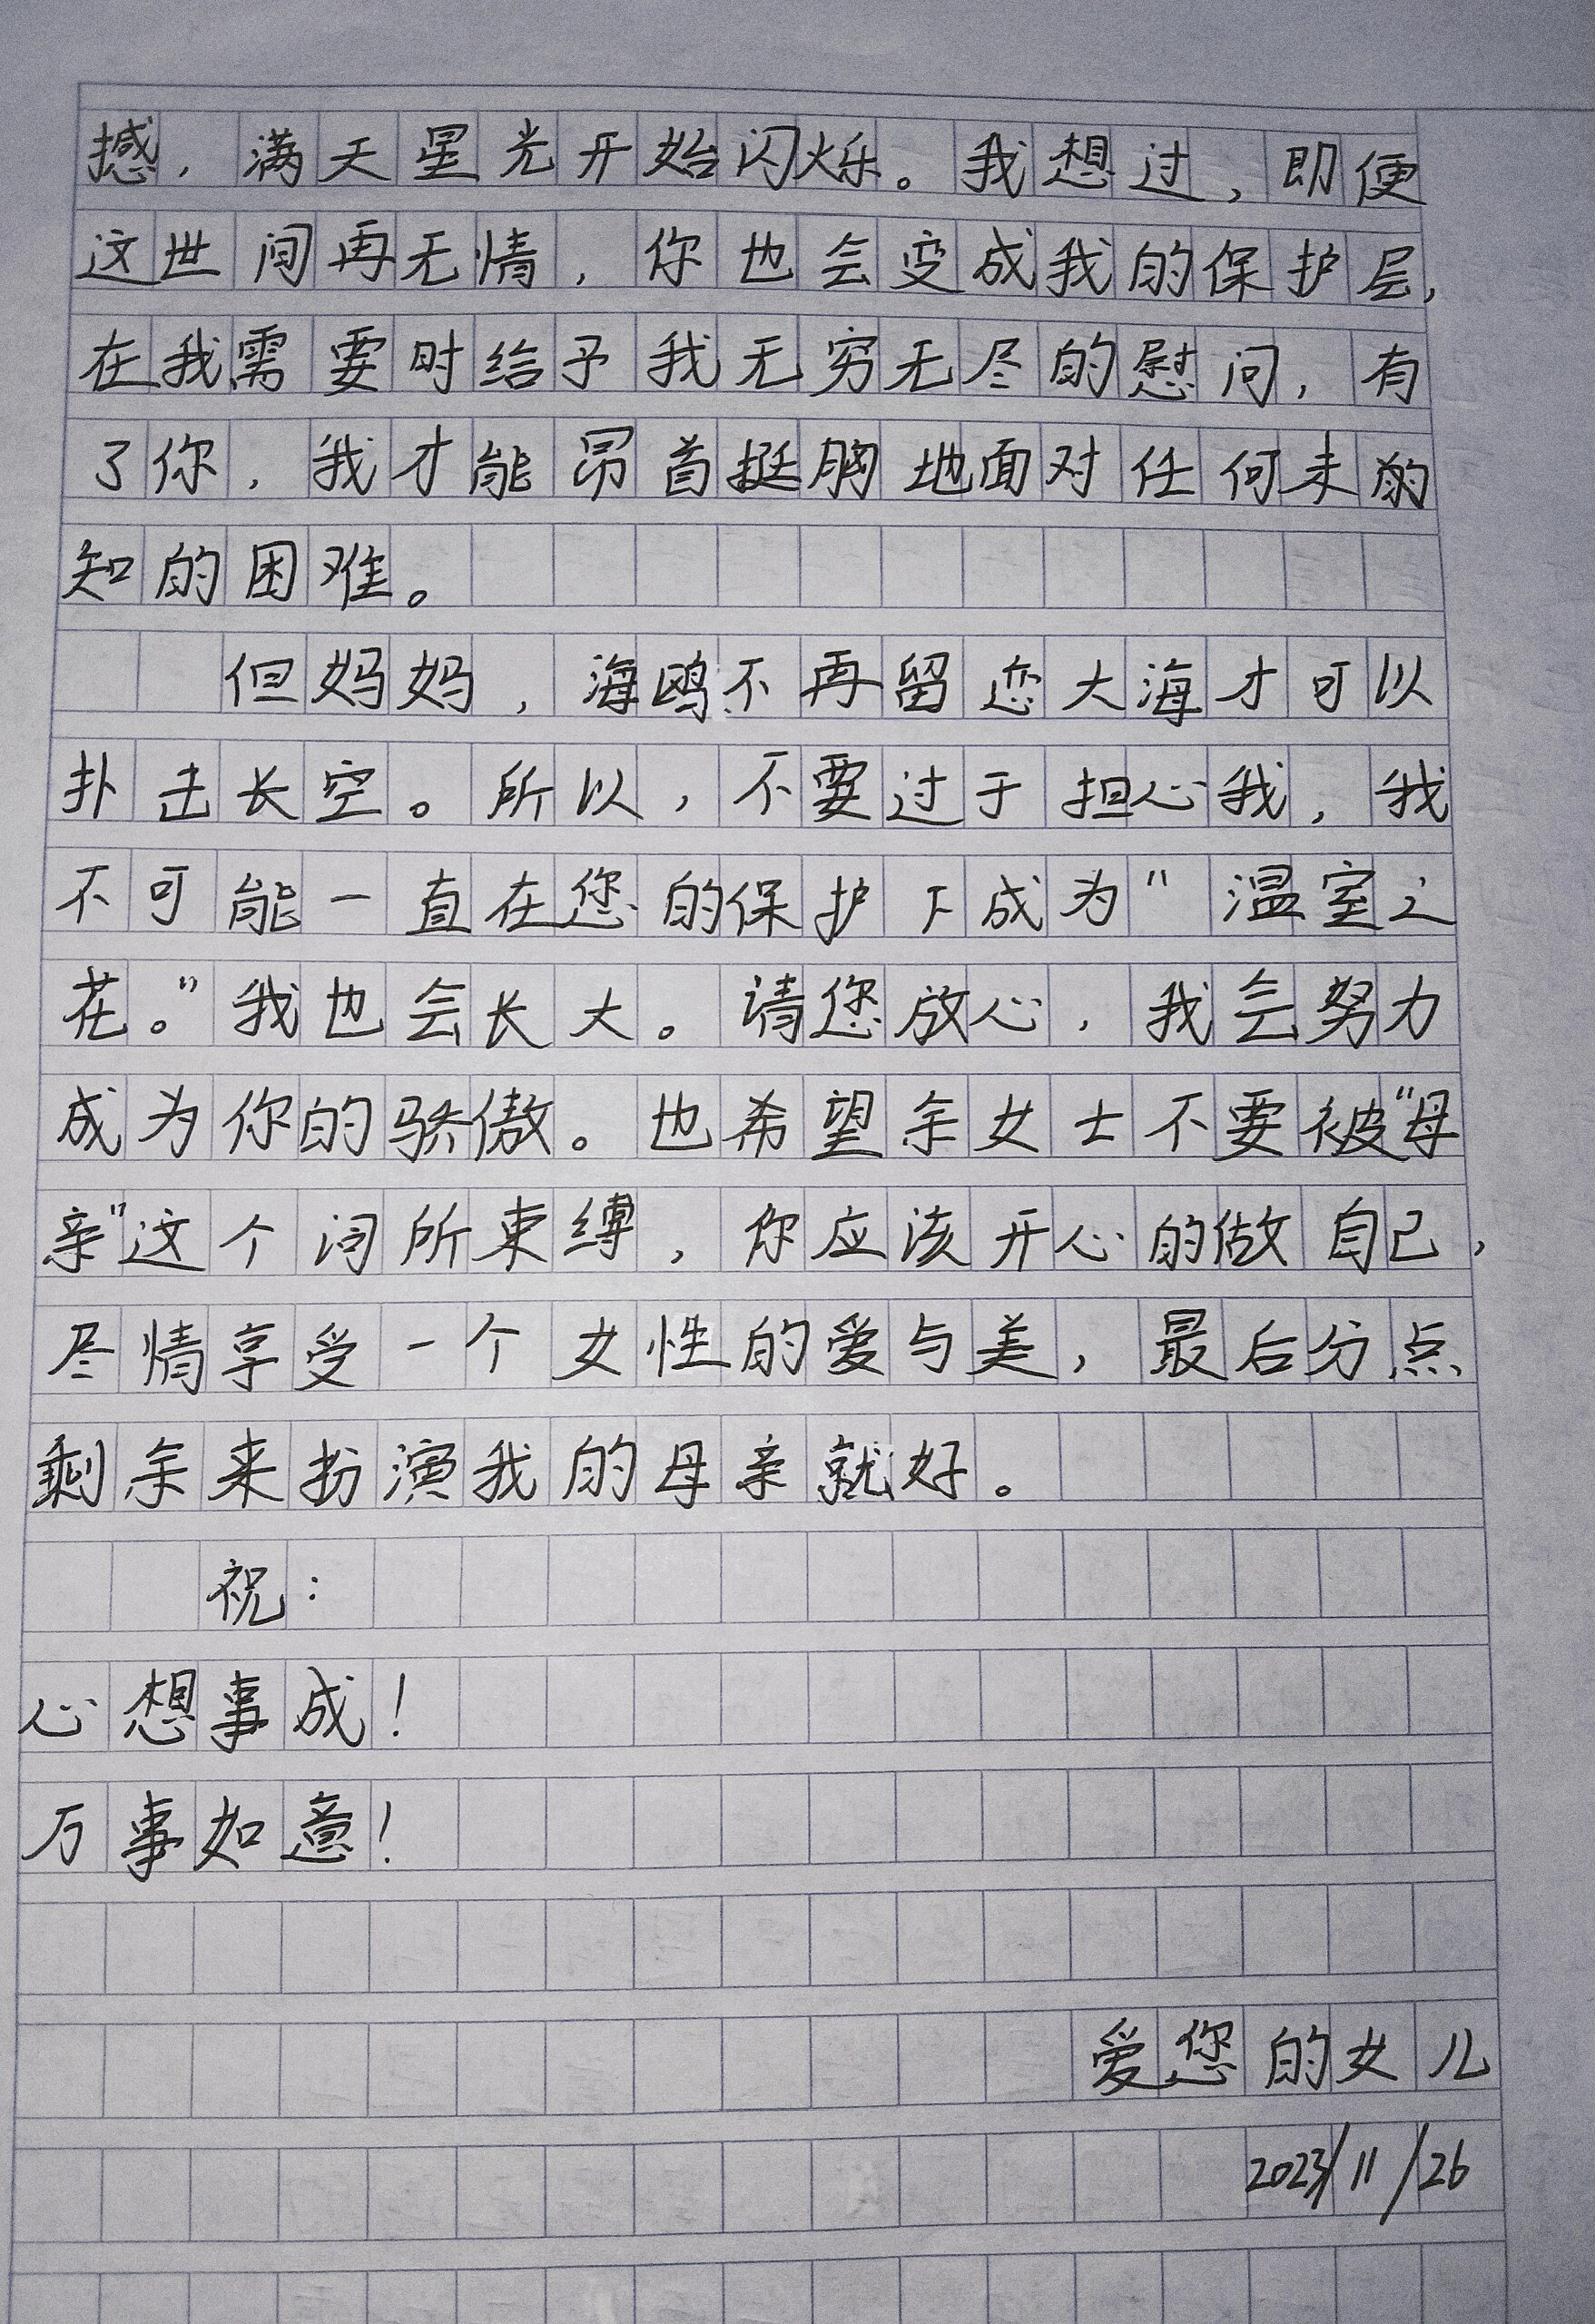 撼，满天星光开始闪烁。我想过，即便
这世间再无情，你也会变成我的保护层，
在我需要时给予我无穷无尽的慰问，有
了你，我才能昂首挺胸地面对任何未的
知的困难。
但妈妈，海鸥不再留恋大海才可以
扑击长空。所以，不要过于担心我，我
不可能一直在您的保护下成为“温室之
花。”我也会长大。请您放心，我会努力
成为你的骄傲。也希望余女士不要被“母
亲”这个词所束缚，你应该开心的做自己，
尽情享受一个女性的爱与美，最后分点
剩余来扮演我的母亲就好。
祝：
心想事成！
万事如意！
爱您的女儿
2023/11/26